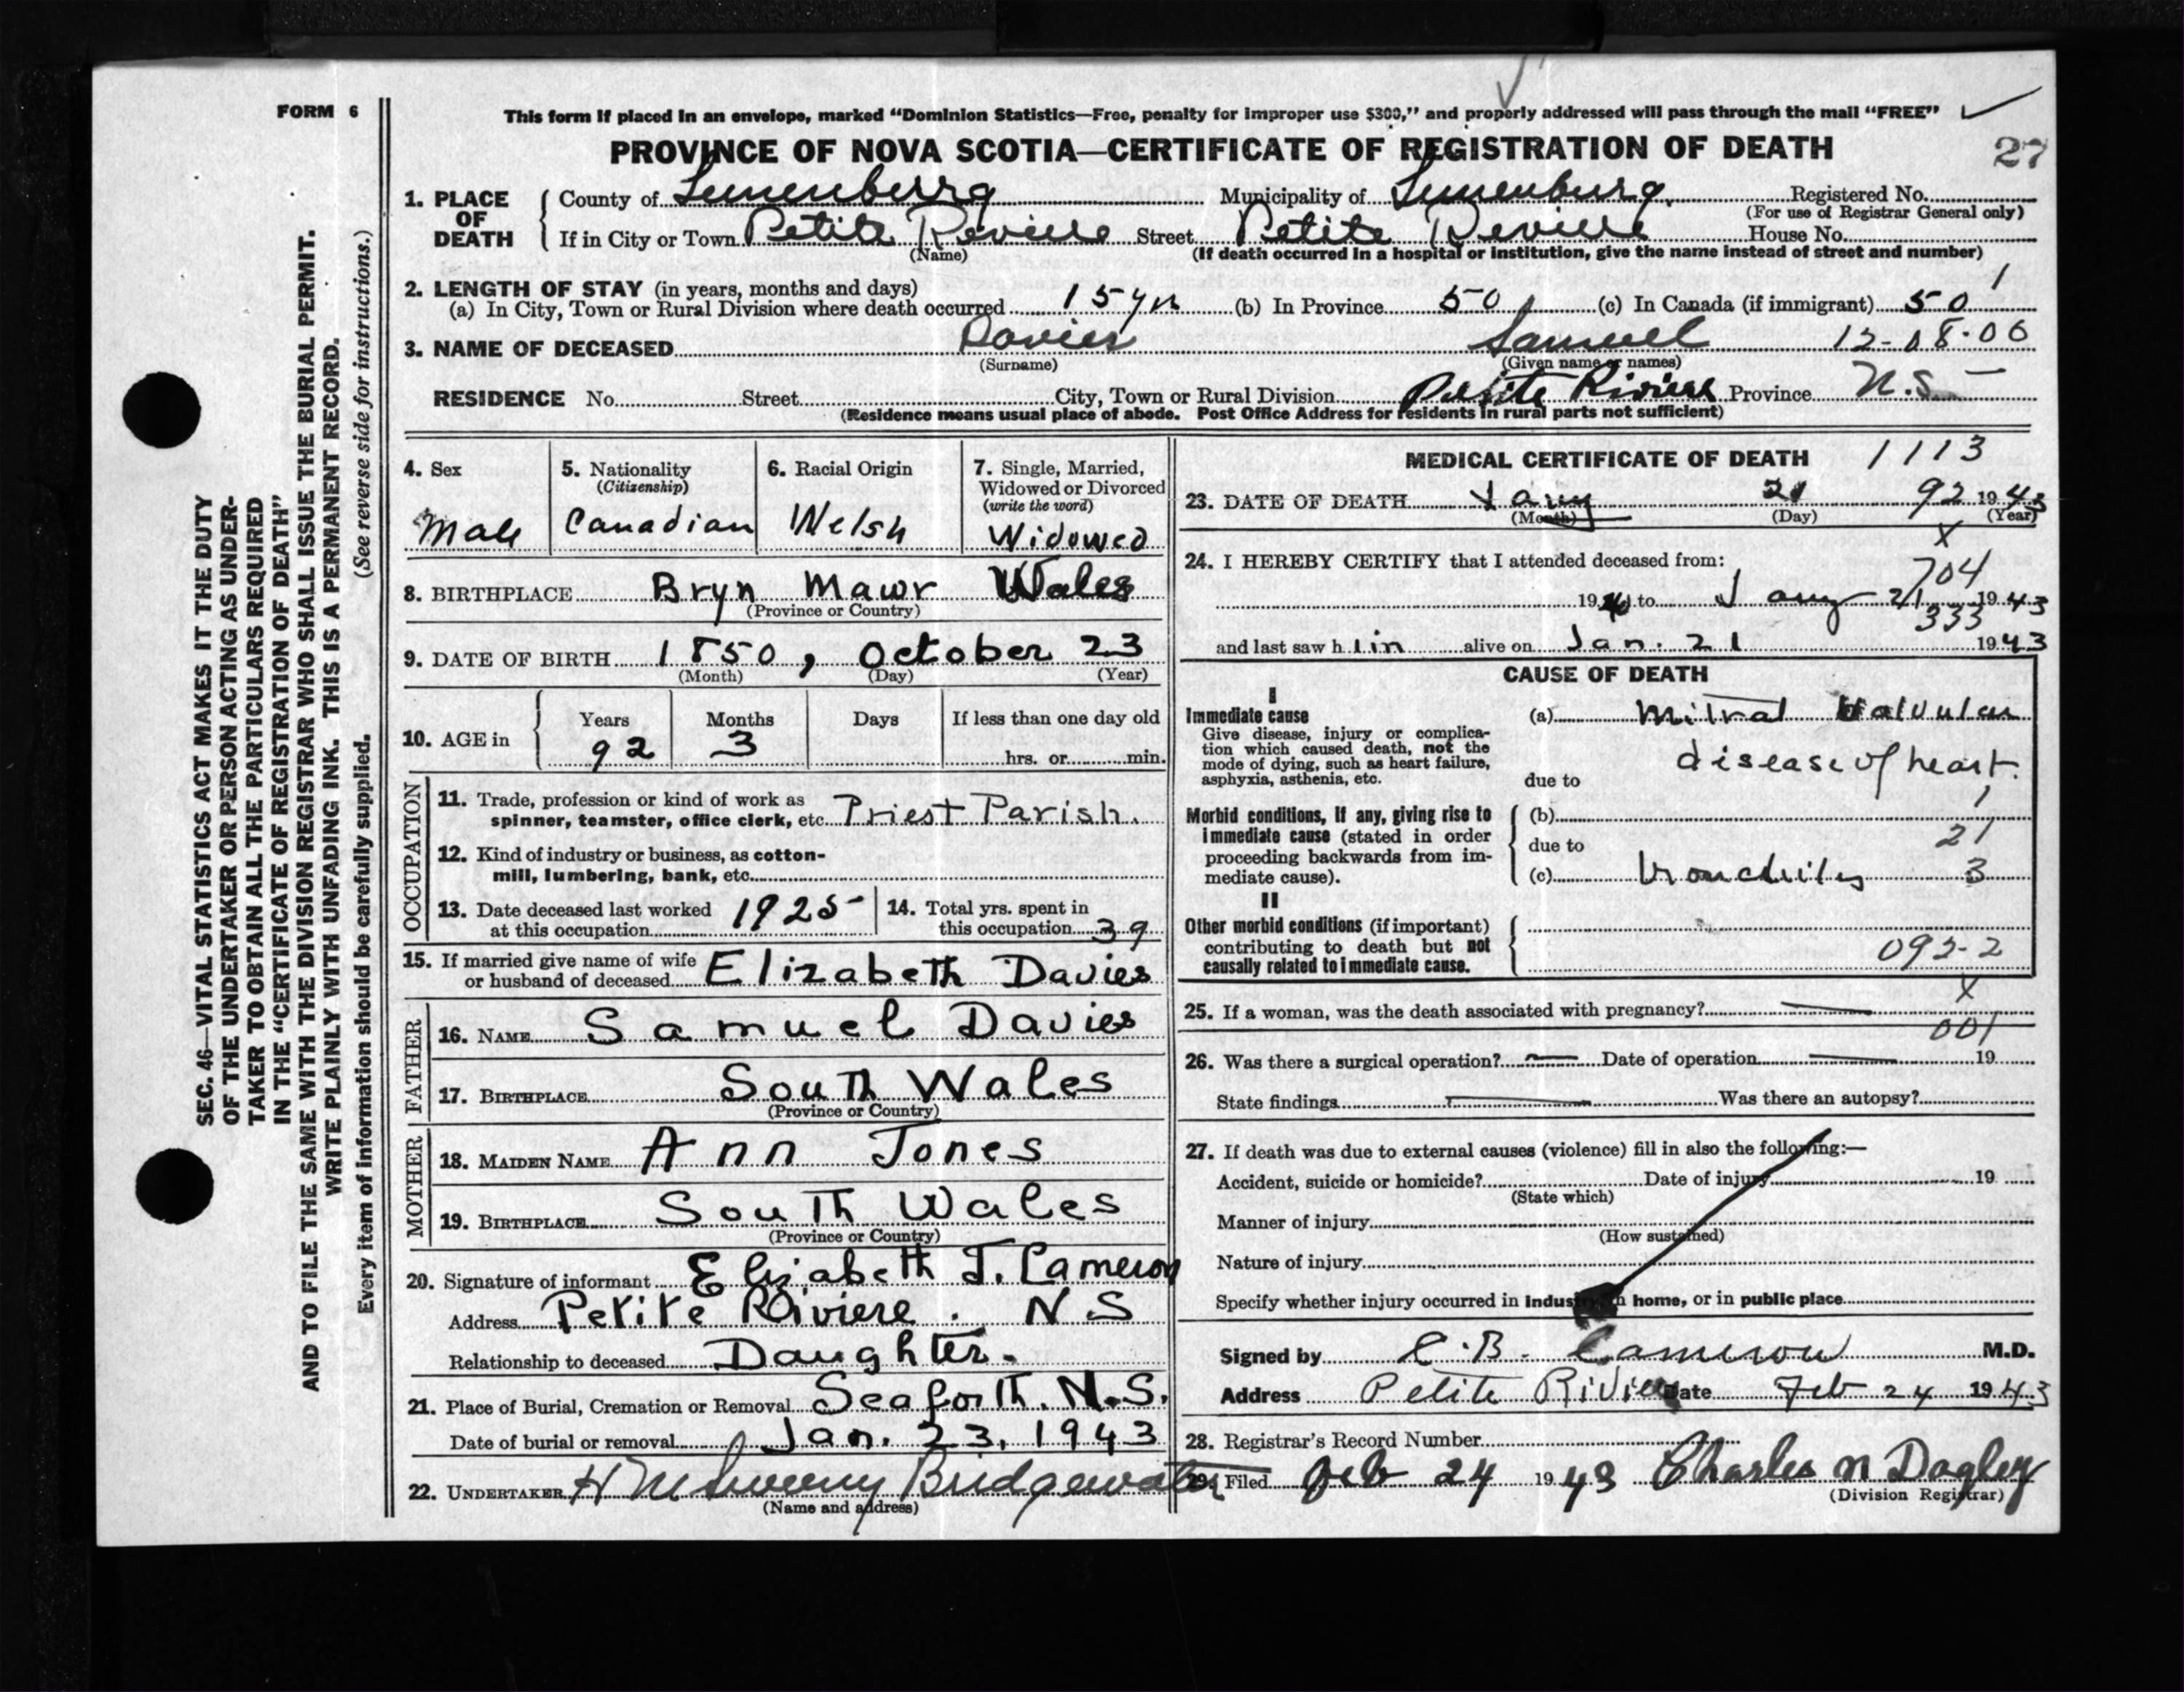 FORM 6
This form if placed in an envelope, marked "Dominion Statistics—Free, penalty for improper use $300," and properly addressed will pass through the mail "FREE"
PROVINCE OF NOVA SCOTIA—CERTIFICATE OF REGISTRATION OF DEATH
27
1. PLACE OF DEATH
County of Lunenberrg Municipality of Lunenburg. Registered No.
(For use of Registrar General only)
If in City or Town Petite Reviere Street Petite Reviere House No.
(Name) (If death occurred in a hospital or institution, give the name instead of street and number)
2. LENGTH OF STAY (in years, months and days) 1
(a) In City, Town or Rural Division where death occurred 15 yrs (b) In Province 50 (c) In Canada (if immigrant) 50
3. NAME OF DECEASED Davies Samuel 12-08-06
(Surname) (Given name or names)
RESIDENCE No. Street City, Town or Rural Division Petite Riviere Province N.S.
(Residence means usual place of abode. Post Office Address for residents in rural parts not sufficient)
4. Sex Male
5. Nationality (Citizenship) Canadian
6. Racial Origin Welsh
7. Single, Married, Widowed or Divorced (write the word) Widowed
8. BIRTHPLACE Bryn Mawr Wales
(Province or Country)
9. DATE OF BIRTH 1850, October 23
(Month) (Day) (Year)
10. AGE in Years 92 Months 3 Days If less than one day old hrs. or min.
OCCUPATION
11. Trade, profession or kind of work as
spinner, teamster, office clerk, etc. Priest Parish.
12. Kind of industry or business, as cotton-
mill, lumbering, bank, etc.
13. Date deceased last worked at this occupation 1925
14. Total yrs. spent in this occupation 39
15. If married give name of wife
or husband of deceased Elizabeth Davies
FATHER
16. NAME Samuel Davies
17. BIRTHPLACE South Wales
(Province or Country)
MOTHER
18. MAIDEN NAME Ann Jones
19. BIRTHPLACE South Wales
(Province or Country)
20. Signature of informant Elizabeth J. Cameron
Address Petite Riviere. N S
Relationship to deceased Daughter.
21. Place of Burial, Cremation or Removal Seaforth. N.S.
Date of burial or removal Jan. 23, 1943
22. UNDERTAKER H M Sweeny Bridgewater
(Name and address)
MEDICAL CERTIFICATE OF DEATH 1113
23. DATE OF DEATH Jany 21 92 1943
(Month) (Day) (Year)
X
24. I HEREBY CERTIFY that I attended deceased from:
704
19 40 to Jany 21 1943
333
and last saw h im alive on Jan. 21 1943
CAUSE OF DEATH
I
Immediate cause
Give disease, injury or complica-
tion which caused death, not the
mode of dying, such as heart failure,
asphyxia, asthenia, etc.
(a) Mitral Valvular
disease of heart.
due to
1
Morbid conditions, if any, giving rise to
immediate cause (stated in order
proceeding backwards from im-
mediate cause).
(b)
21
due to
(c) bronchitis 3
II
Other morbid conditions (if important)
contributing to death but not
causally related to immediate cause.
092-2
X
25. If a woman, was the death associated with pregnancy?
001
26. Was there a surgical operation? Date of operation 19
State findings Was there an autopsy?
27. If death was due to external causes (violence) fill in also the following:—
Accident, suicide or homicide? Date of injury 19
(State which)
Manner of injury
(How sustained)
Nature of injury
Specify whether injury occurred in industry, in home, or in public place
Signed by C.B. Cameron M.D.
Address Petite Riviere Date Feb 24 1943
28. Registrar's Record Number
29. Filed Feb 24 1943 Charles N Dagley
(Division Registrar)
SEC. 46—VITAL STATISTICS ACT MAKES IT THE DUTY
OF THE UNDERTAKER OR PERSON ACTING AS UNDER-
TAKER TO OBTAIN ALL THE PARTICULARS REQUIRED
IN THE "CERTIFICATE OF REGISTRATION OF DEATH"
AND TO FILE THE SAME WITH THE DIVISION REGISTRAR WHO SHALL ISSUE THE BURIAL PERMIT.
WRITE PLAINLY WITH UNFADING INK. THIS IS A PERMANENT RECORD.
Every item of information should be carefully supplied. (See reverse side for instructions.)